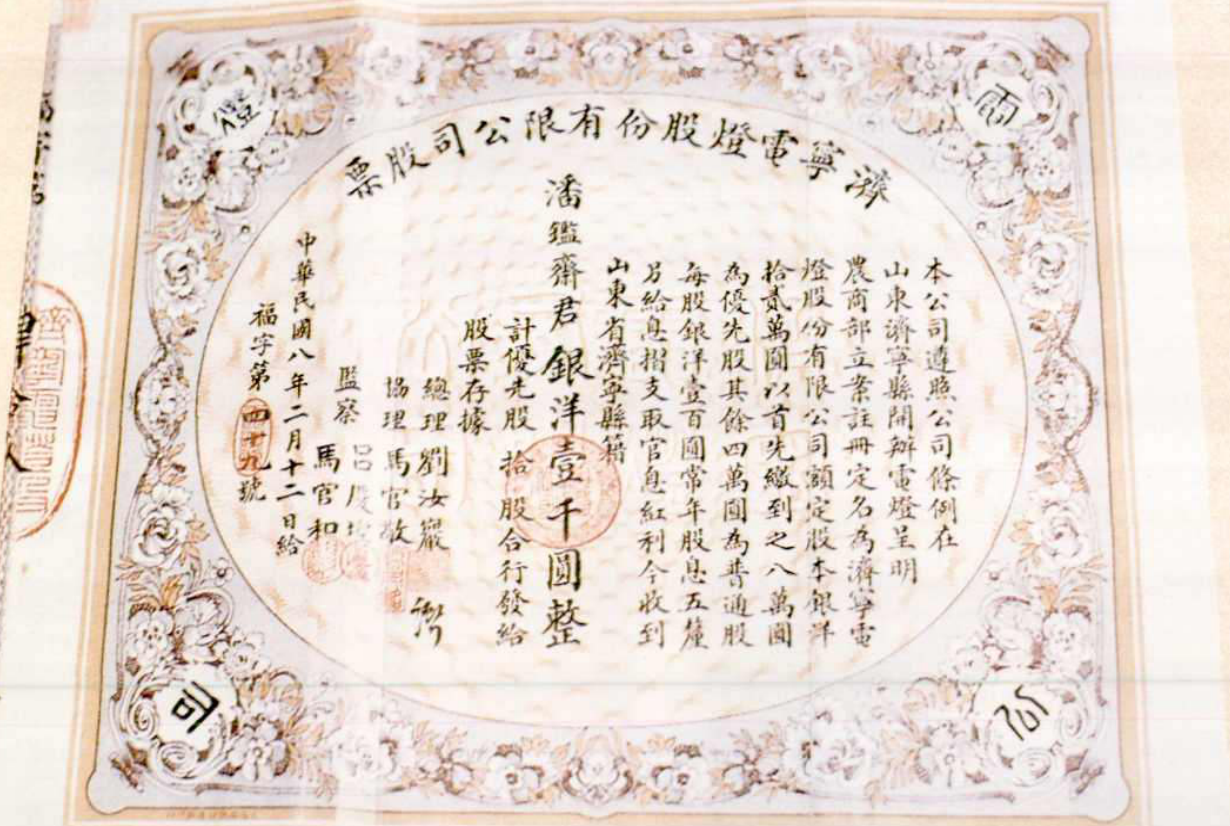 濟寧電燈股份有限公司股票
電
燈
公
司
本公司遵照公司條例在
山東濟寧縣開辦電燈呈明
農商部立案註冊定名為濟寧電
燈股份有限公司額定股本銀洋
拾貳萬圓以首先繳到之八萬圓
為優先股其餘四萬圓為普通股
每股銀洋壹百圓常年股息五釐
另給息摺支取官息紅利今收到
山東省濟寧縣籍
潘鑑齋君銀洋壹千圓整
計優先股拾股合行發給
股票存據
總理劉汝巖
協理馬官敬
監察
呂慶
馬官和
中華民國八年二月十二日給
福字第四十九號